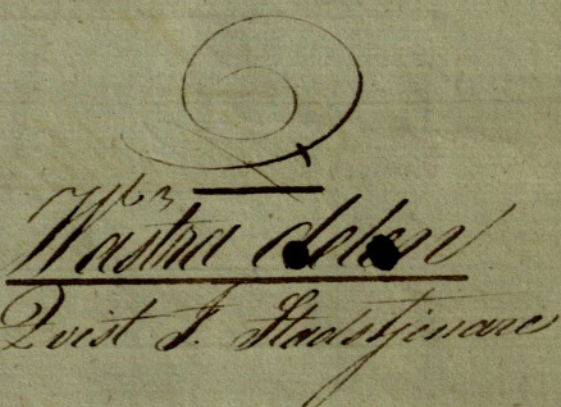 Q
Wastra delen
Qvist J. Stadstjenare